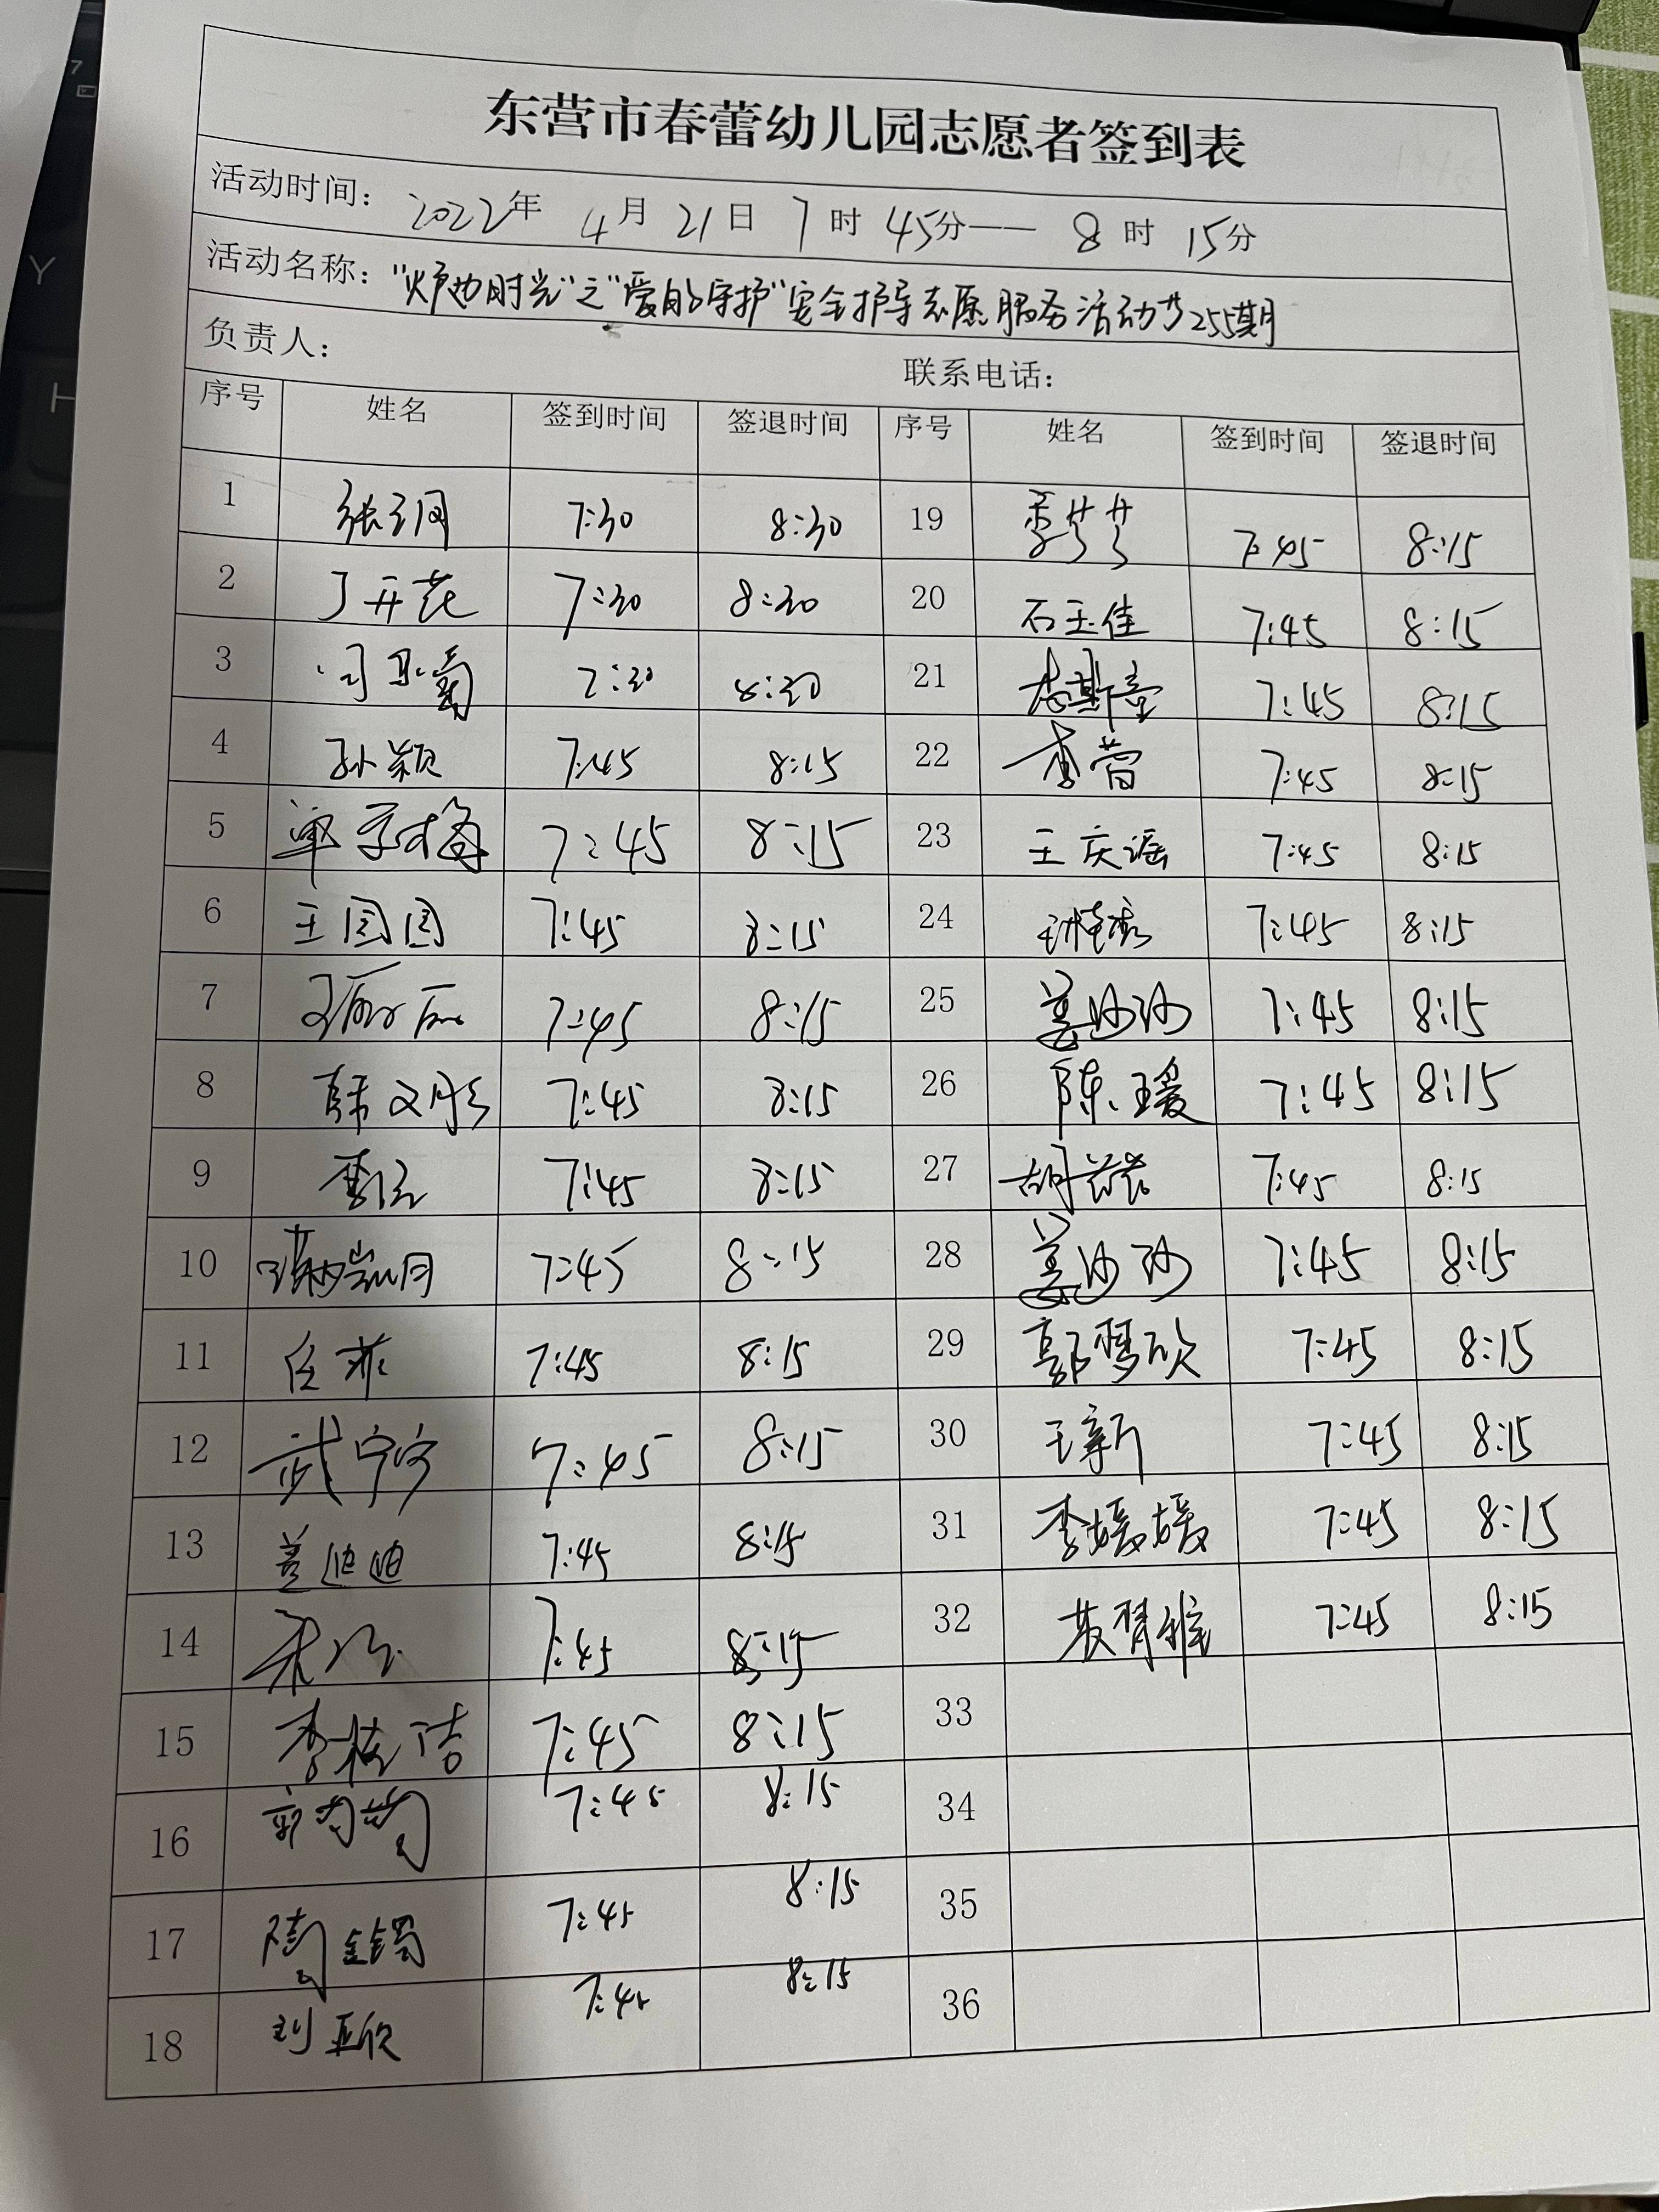 东营市春蕾幼儿园志愿者签到表
活动时间： 2022年 4月 21日 7时 45分—— 8时 15分
活动名称："炉边时光"之"爱的守护"安全护导志愿服务活动第255期
负责人： 联系电话：
序号 姓名 签到时间 签退时间 序号 姓名 签到时间 签退时间
1 7:30 8:30 19 李艿艿 7:45 8:15
2 丁开花 7:30 8:30 20 石玉佳 7:45 8:15
3 7:30 8:30 21 7:45 8:15
4 孙颖 7:45 8:15 22 李营 7:45 8:15
5 单学梅 7:45 8:15 23 王庆谣 7:45 8:15
6 王园园 7:45 8:15 24 7:45 8:15
7 7:45 8:15 25 姜沙沙 7:45 8:15
8 韩文彤 7:45 8:15 26 陈瑗 7:45 8:15
9 7:45 8:15 27 7:45 8:15
10 7:45 8:15 28 姜沙沙 7:45 8:15
11 任菲 7:45 8:15 29 郭梦欣 7:45 8:15
12 武宁宁 7:45 8:15 30 王新 7:45 8:15
13 盖迪迪 7:45 8:15 31 李媛媛 7:45 8:15
14 7:45 8:15 32 7:45 8:15
15 李桂洁 7:45 8:15 33
16 7:45 8:15 34
17 7:45 8:15 35
18 刘亚欣 7:45 8:15 36